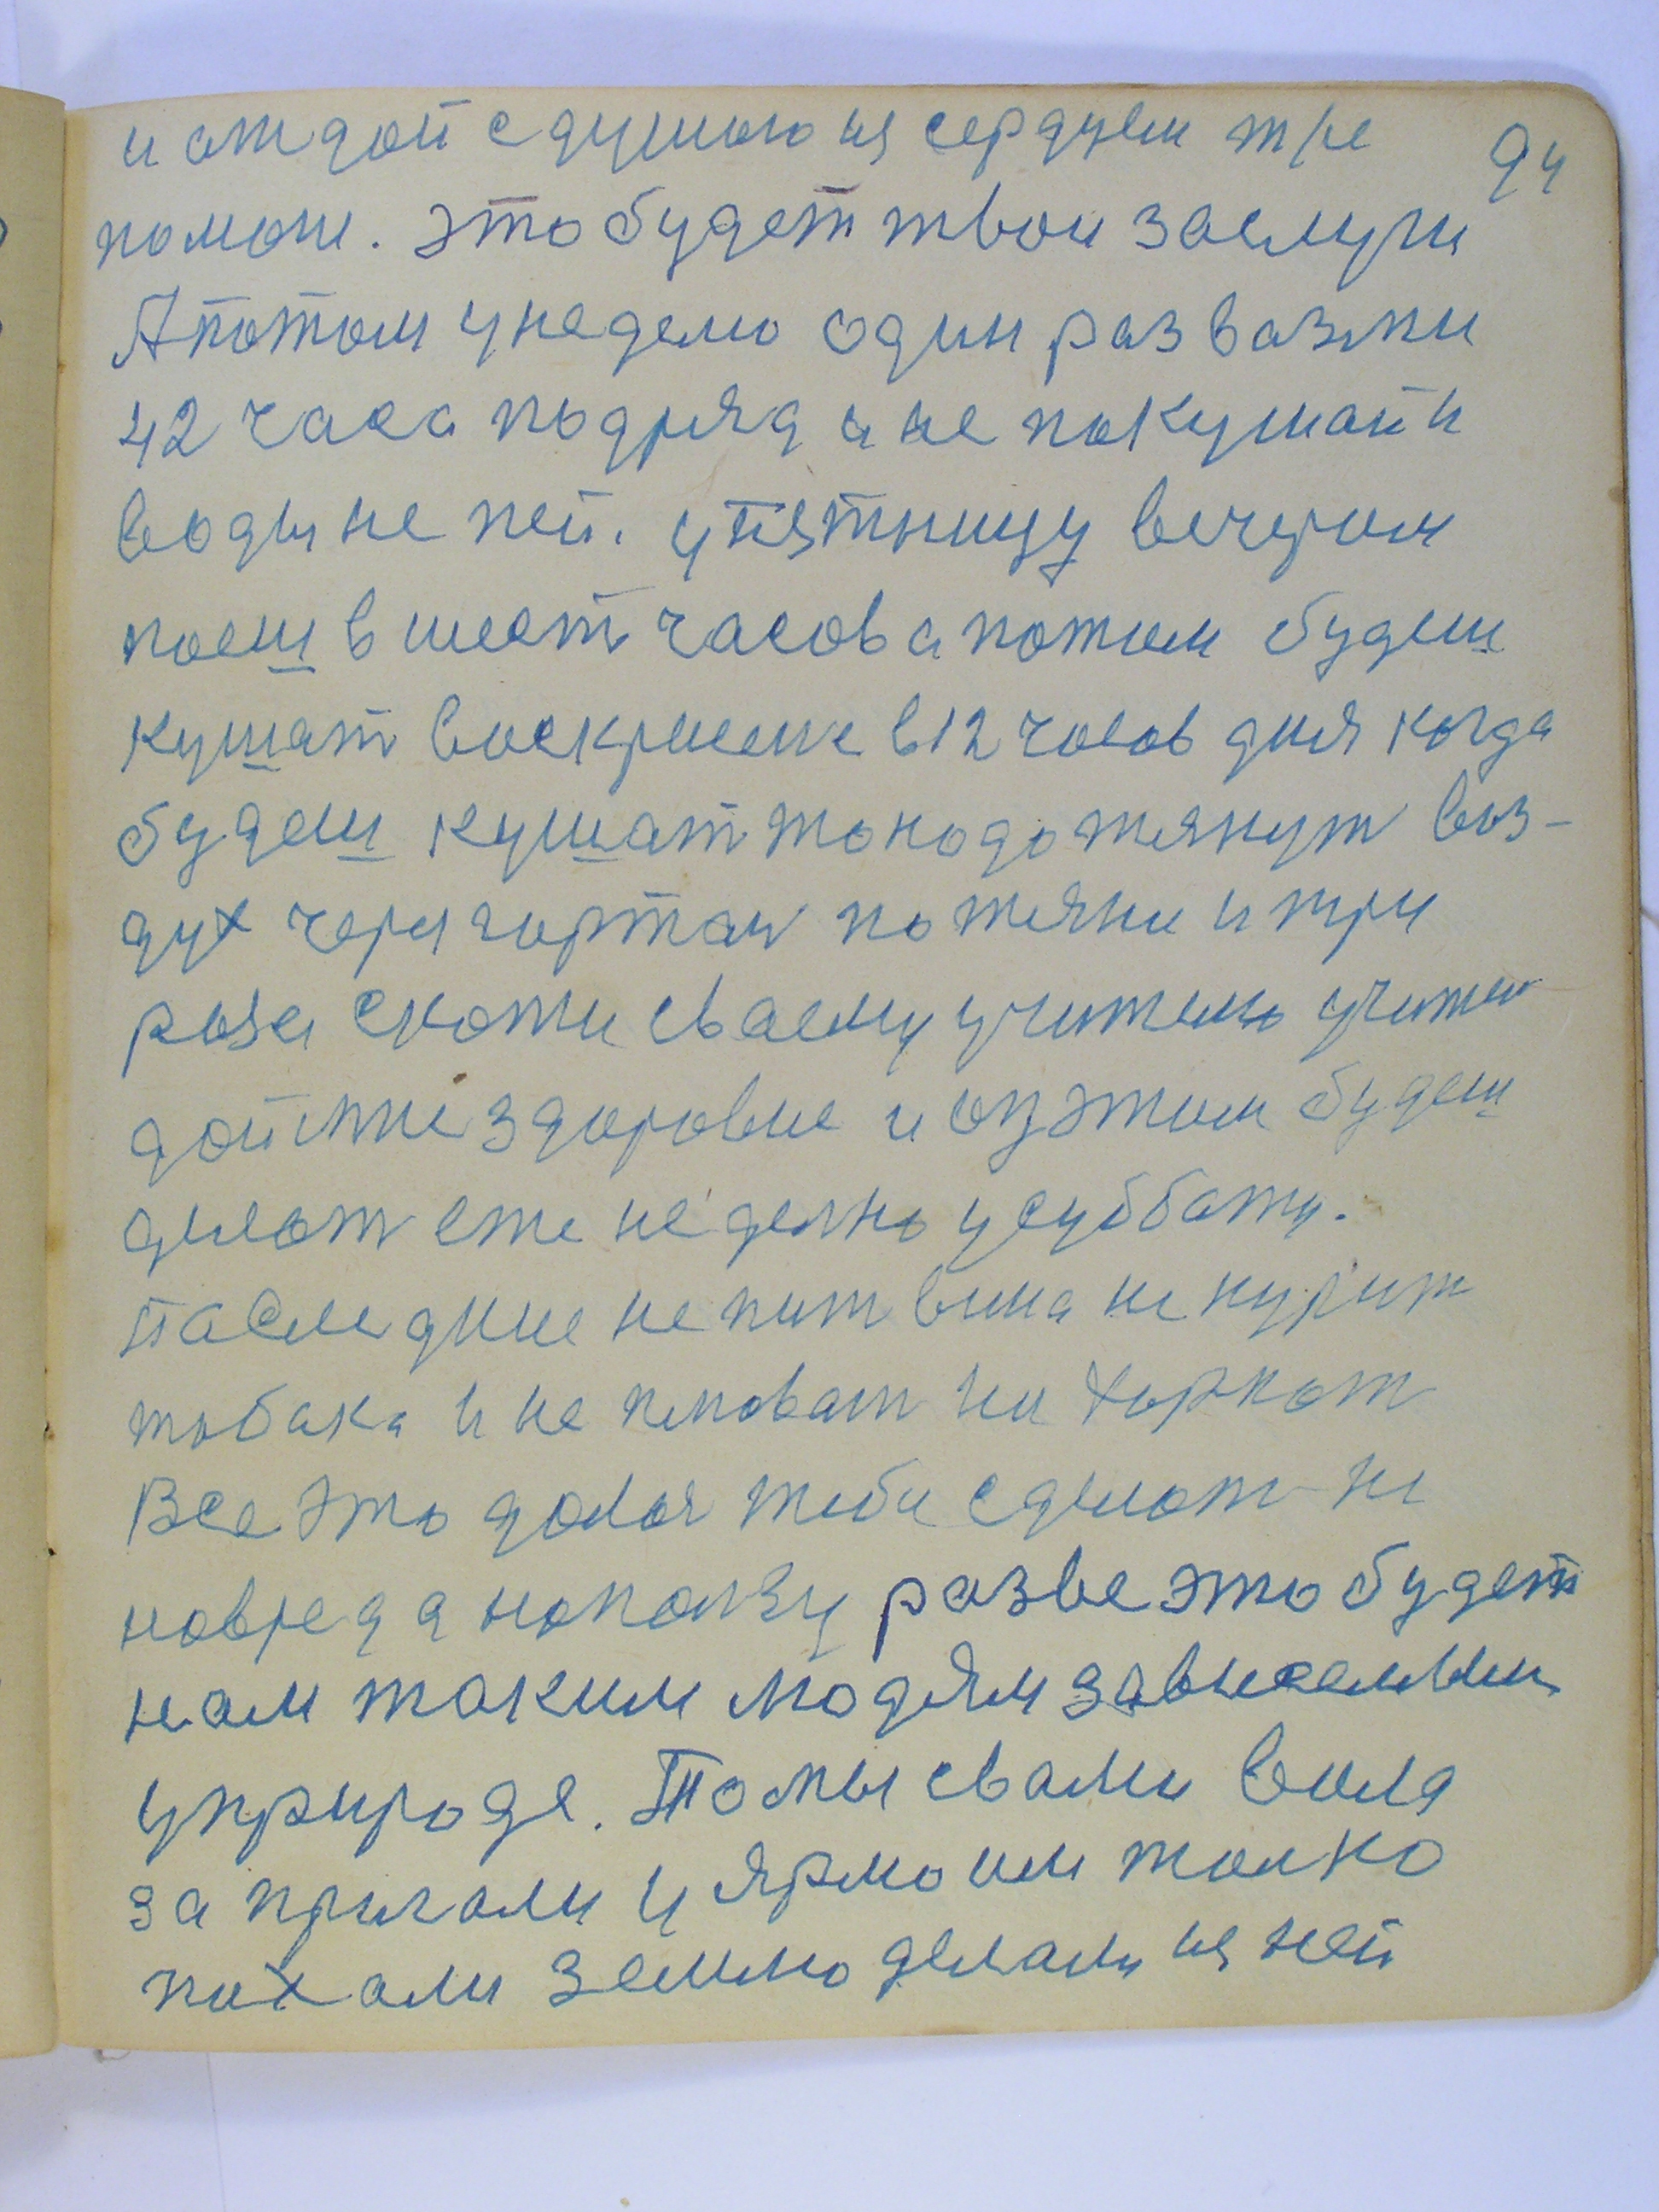 и отдой с душою из сердцем тре 94
помощ. это будет твои заслуги
А потом у неделю один раз вазми
42 часа подряд и не покушай и
воды не пей. у пятницу вечером
поеш в шест часов а потом будеш
кушат воскресене в 12 часов дня когда
будеш кушат то надо тянут воз-
дух через гортан потяни и три
роза скажи своему учителю учител
дой мне здоровие и оц этом будеш
делат еже неделно у субботу.
последние не пит вина не курит
тобака и не плюват ни харкат
Все это доля тебе сделат не
навред а на ползу разве это будет
нам таким людям зависемыми
у природе. То мы с вами вола
запригали у ярмо им толко
пахали землю делали из ней